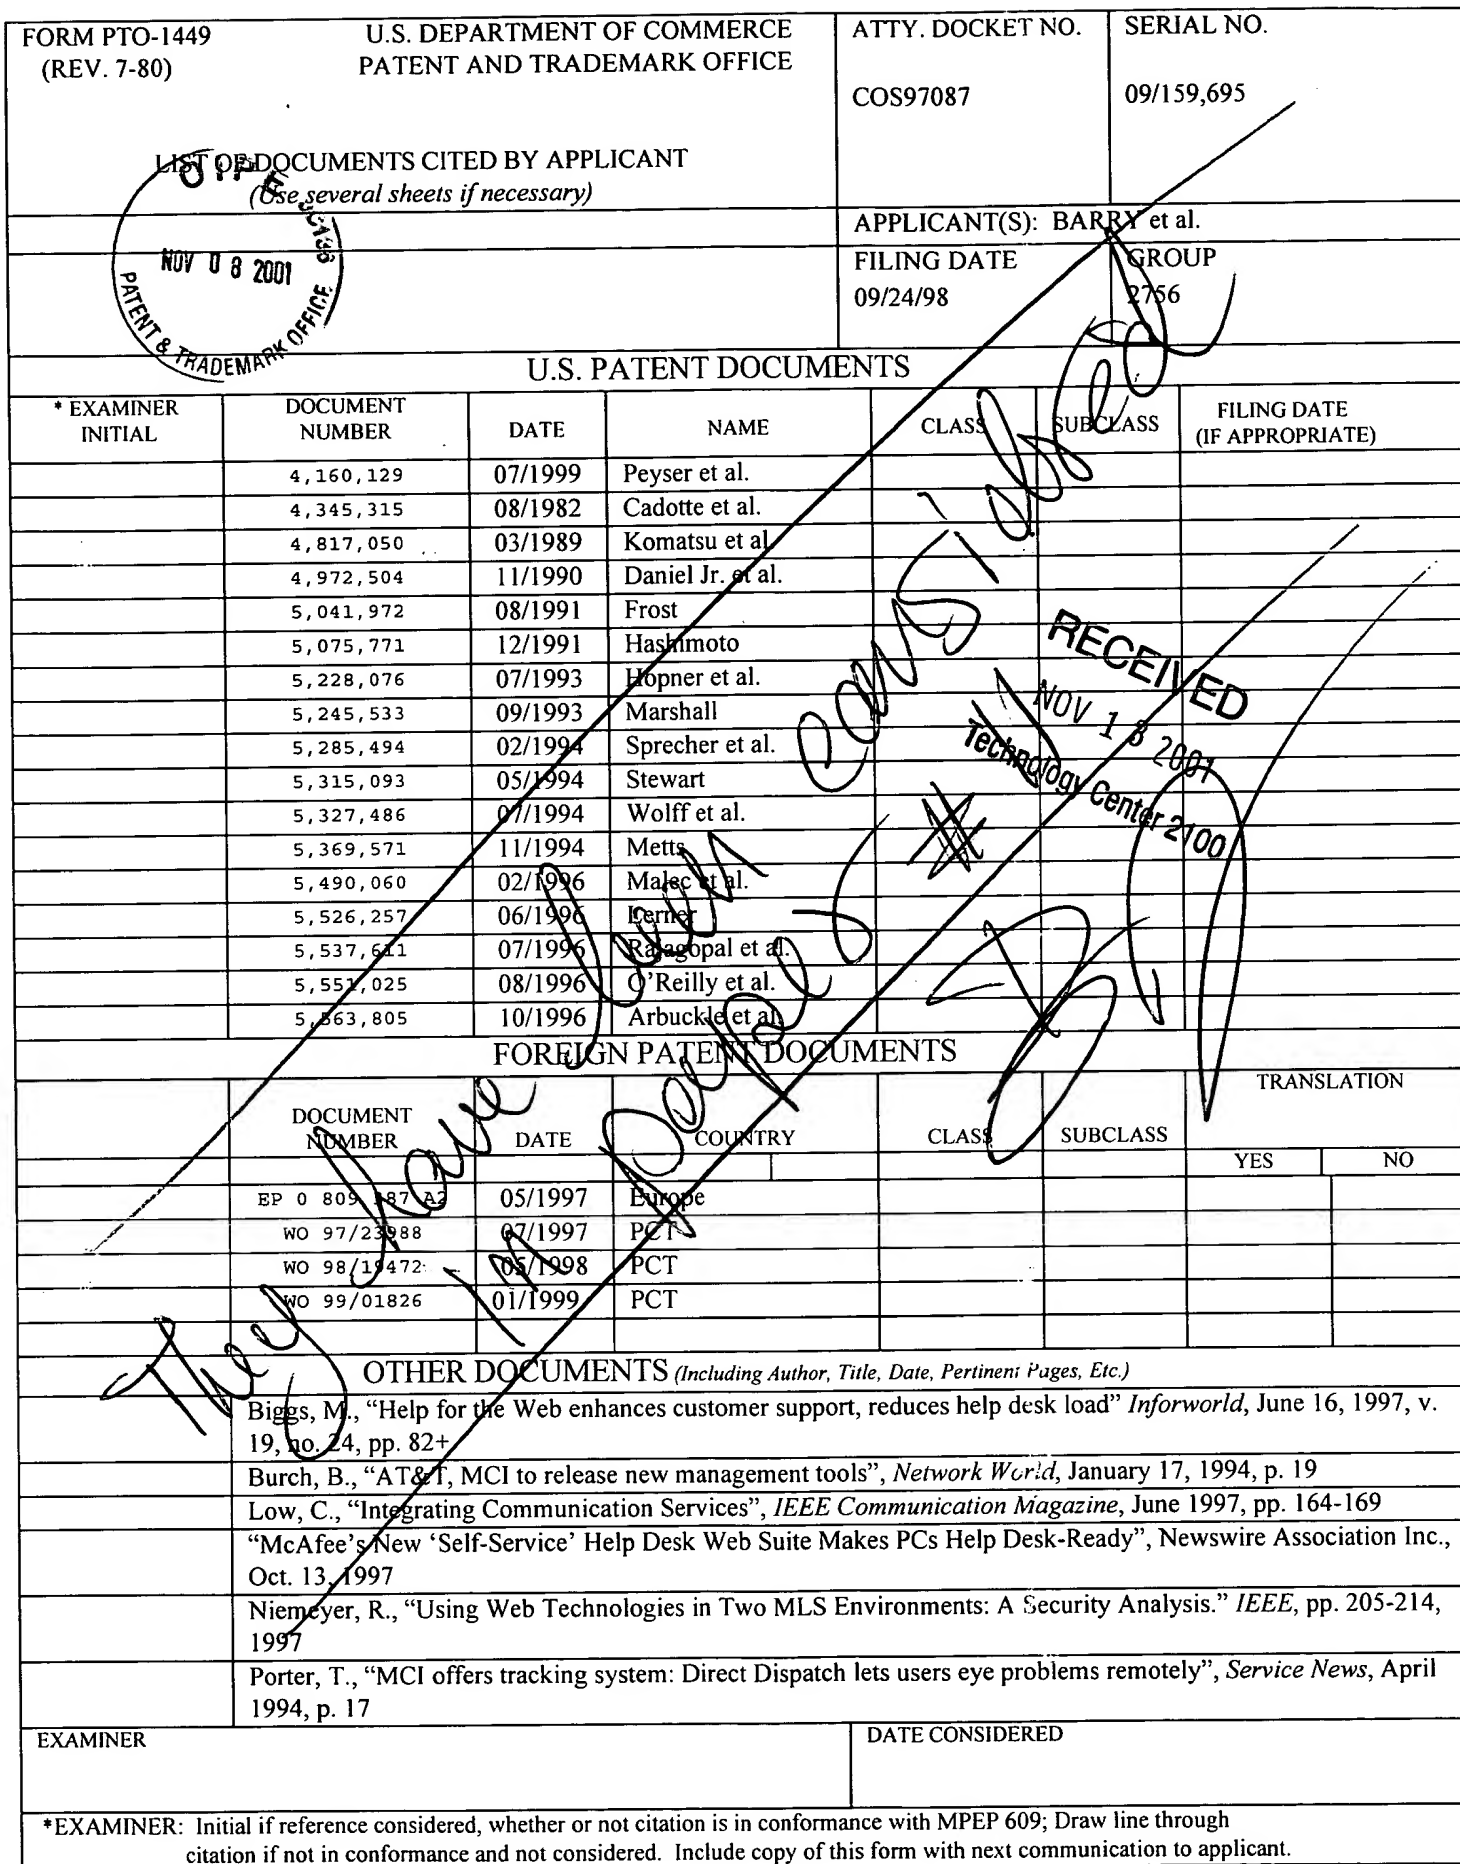 FORM PTO-1449 U.S. DEPARTMENT OF COMMERCE ATTY. DOCKET NO. SERIAL NO.
(REV. 7-80) PATENT AND TRADEMARK OFFICE
COS97087 09/159,695
LIST OF DOCUMENTS CITED BY APPLICANT
(Use several sheets if necessary)
OIPE JC135
NOV 08 2001
PATENT & TRADEMARK OFFICE
APPLICANT(S): BARRY et al.
FILING DATE GROUP
09/24/98 2756
U.S. PATENT DOCUMENTS
* EXAMINER INITIAL DOCUMENT NUMBER DATE NAME CLASS SUBCLASS FILING DATE (IF APPROPRIATE)
4,160,129 07/1999 Peyser et al.
4,345,315 08/1982 Cadotte et al.
4,817,050 03/1989 Komatsu et al.
4,972,504 11/1990 Daniel Jr. et al.
5,041,972 08/1991 Frost
5,075,771 12/1991 Hashimoto
5,228,076 07/1993 Hopner et al.
5,245,533 09/1993 Marshall
5,285,494 02/1994 Sprecher et al.
5,315,093 05/1994 Stewart
5,327,486 07/1994 Wolff et al.
5,369,571 11/1994 Metts
5,490,060 02/1996 Malec et al.
5,526,257 06/1996 Lerner
5,537,611 07/1996 Rajagopal et al.
5,551,025 08/1996 O'Reilly et al.
5,563,805 10/1996 Arbuckle et al.
RECEIVED
NOV 13 2001
Technology Center 2100
They have been considered
in paper #
FOREIGN PATENT DOCUMENTS
DOCUMENT NUMBER DATE COUNTRY CLASS SUBCLASS TRANSLATION
YES NO
EP 0 809 387 A2 05/1997 Europe
WO 97/23988 07/1997 PCT
WO 98/19472 05/1998 PCT
WO 99/01826 01/1999 PCT
OTHER DOCUMENTS (Including Author, Title, Date, Pertinent Pages, Etc.)
Biggs, M., “Help for the Web enhances customer support, reduces help desk load” Inforworld, June 16, 1997, v.
19, no. 24, pp. 82+
Burch, B., “AT&T, MCI to release new management tools”, Network World, January 17, 1994, p. 19
Low, C., “Integrating Communication Services”, IEEE Communication Magazine, June 1997, pp. 164-169
“McAfee's New ‘Self-Service’ Help Desk Web Suite Makes PCs Help Desk-Ready”, Newswire Association Inc.,
Oct. 13, 1997
Niemeyer, R., “Using Web Technologies in Two MLS Environments: A Security Analysis.” IEEE, pp. 205-214,
1997
Porter, T., “MCI offers tracking system: Direct Dispatch lets users eye problems remotely”, Service News, April
1994, p. 17
EXAMINER DATE CONSIDERED
*EXAMINER: Initial if reference considered, whether or not citation is in conformance with MPEP 609; Draw line through
citation if not in conformance and not considered. Include copy of this form with next communication to applicant.